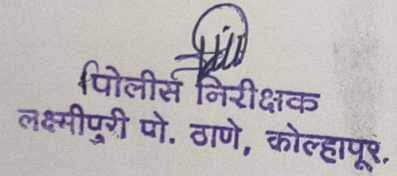 पोलीस निरीक्षक
लक्ष्मीपुरी पो. ठाणे, कोल्हापूर.